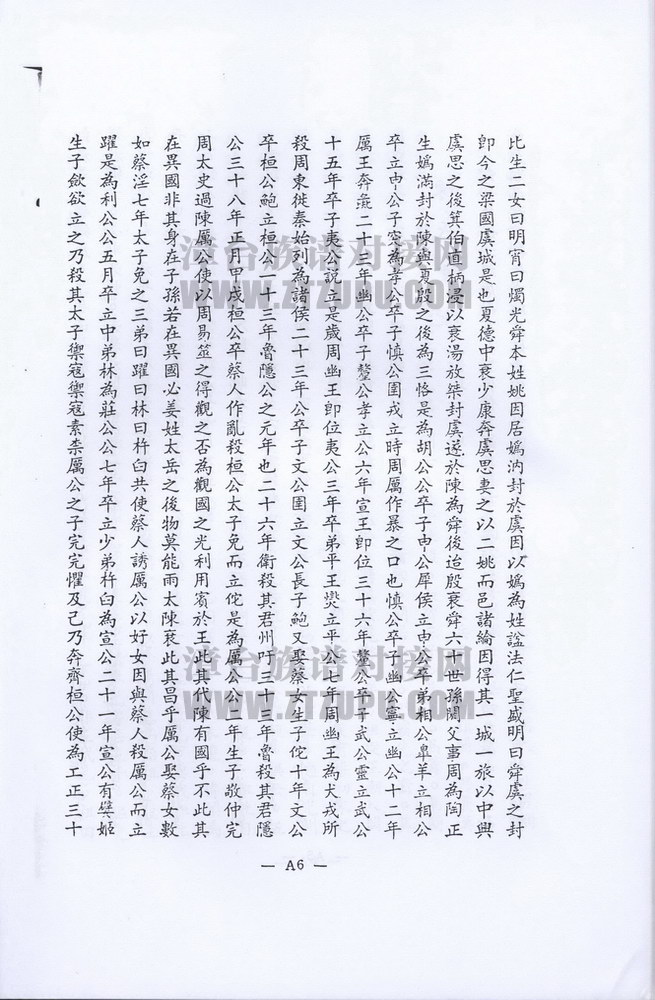 比生二女曰明宵曰燭光舜本姓姚因居媯汭封於虞因以媯為姓謚法仁聖盛明曰舜虞之封
即今之梁國虞城是也夏德中衰少康奔虞思妻之以二姚而邑諸綸因得其一城一旅以中興
虞思之後箕伯直柄浸以衰湯放桀封虞遂於陳為舜後迨殷衰舜六十世孫閼父事周為陶正
生媯滿封於陳與夏殷之後為三恪是為胡公公卒子申公犀侯立申公卒弟相公臯羊立相公
卒立申公子突為孝公卒子慎公圉戎立時周厲作暴之口也慎公卒子幽公寧立幽公十二年
厲王奔彘二十三年幽公卒子釐公孝立公六年宣王即位三十六年釐公卒子武公靈立武公
十五年卒子夷公說立是歲周幽王即位夷公三年卒弟平王爕立平公七年周幽王為犬戎所
殺周東徙秦始列為諸侯二十三年公卒子文公圉立文公長子鮑又娶蔡女生子佗十年文公
卒桓公鮑立桓公二十三年魯隱公之元年也二十六年衛殺其君州吁三十三年魯殺其君隱
公三十八年正月甲戌桓公卒蔡人作亂殺桓公太子免而立佗是為厲公公二年生子敬仲完
周太史過陳厲公使以周易筮之得觀之否為觀國之光利用賓於王此其代陳有國乎不此其
在異國非其身在子孫若在異國必姜姓太岳之後物莫能雨太陳衰此其昌乎厲公娶蔡女數
如蔡淫七年太子免之三弟曰躍曰林曰杵臼共使蔡人誘厲公以好女因與蔡人殺厲公而立
躍是為利公公五月卒立中弟林為莊公公七年卒立少弟杵臼為宣公二十一年宣公有嬖姬
生子欵欲立之乃殺其太子禦寇禦寇素柰厲公之子完完懼及己乃奔齊桓公使為工正三十
— A6 —
漳台族谱对接网
WWW.ZTZUPU.COM
漳台族谱对接网
WWW.ZTZUPU.COM